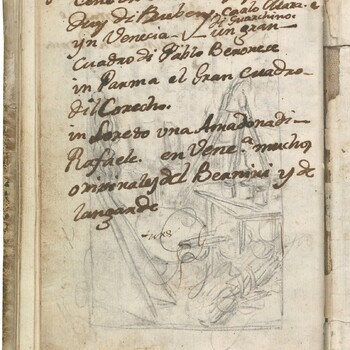 duy di Rubens, Carlo Mara. e
di Guarchino.
yn Venecia. un gran
Cuadro di Pablo Beronece
in Parma el Gran Cuadro
dil Corecho.
in Loreto una Amadona di
Rafaele. en Vene.ª muchos
originales del Beanini y de